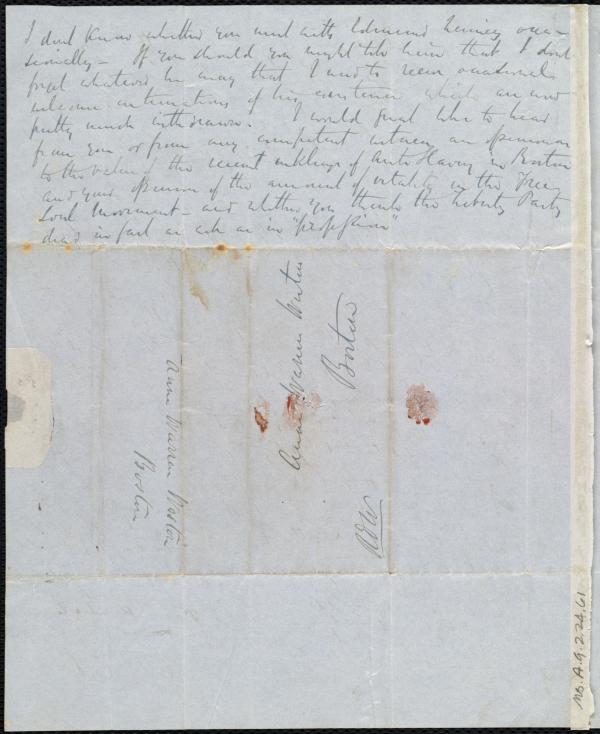 I dont know whether you meet with Edmund Quincy occa-
sionally - If you should you might tell him that I dont
forget whatever he may that I used to receive occasional
welcome intimations of his existence which are now
pretty much withdrawn. I would first like to hear
from you or from any competent witness an opinion
to the value of the recent inklings of Anti Slavery in Boston
and your opinion of the amount of vitality in the Free
Soil movement - and whether you think the Liberty Party
dead in fact as as in "profession"
Anne Warren Weston
Boston
RDW
Anne Warren Weston
Boston
Ms.A.9.2.24.61